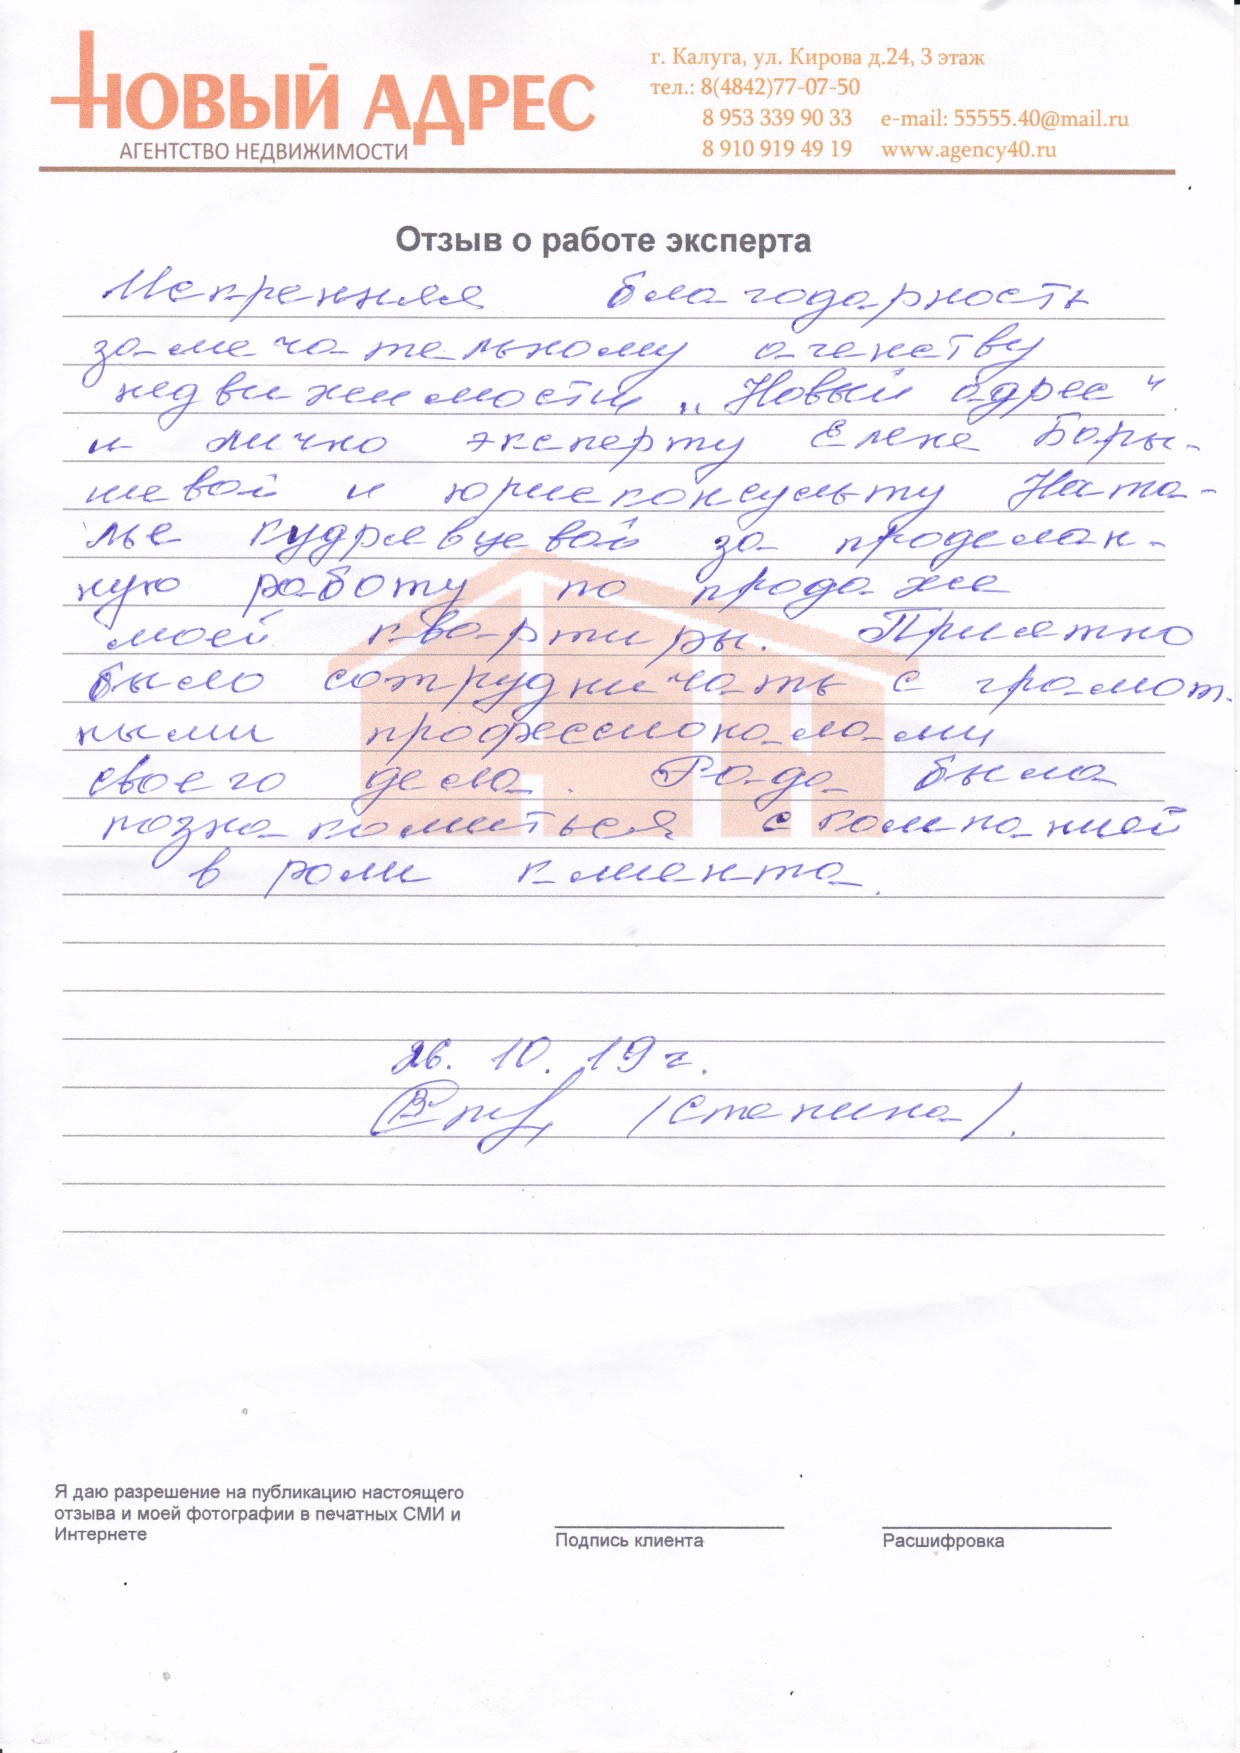 НОВЫЙ АДРЕС
АГЕНТСТВО НЕДВИЖИМОСТИ
г. Калуга, ул. Кирова д.24, 3 этаж
тел.: 8(4842)77-07-50
8 953 339 90 33 e-mail: 55555.40@mail.ru
8 910 919 49 19 www.agency40.ru
Отзыв о работе эксперта
Искренняя благодарность
замечательному агенству
недвижимости „Новый адрес"
и лично эксперту Елене Бары-
шевой и юрисконсульту Ната-
лье Кудрявцевой за проделан-
ную работу по продаже
моей квартиры. Приятно
было сотрудничать с грамот-
ными профессионалами
своего дела. Рада была
познакомиться с компанией
в роли клиента.
26. 10. 19 г.
(Степина).
Я даю разрешение на публикацию настоящего
отзыва и моей фотографии в печатных СМИ и
Интернете
Подпись клиента
Расшифровка